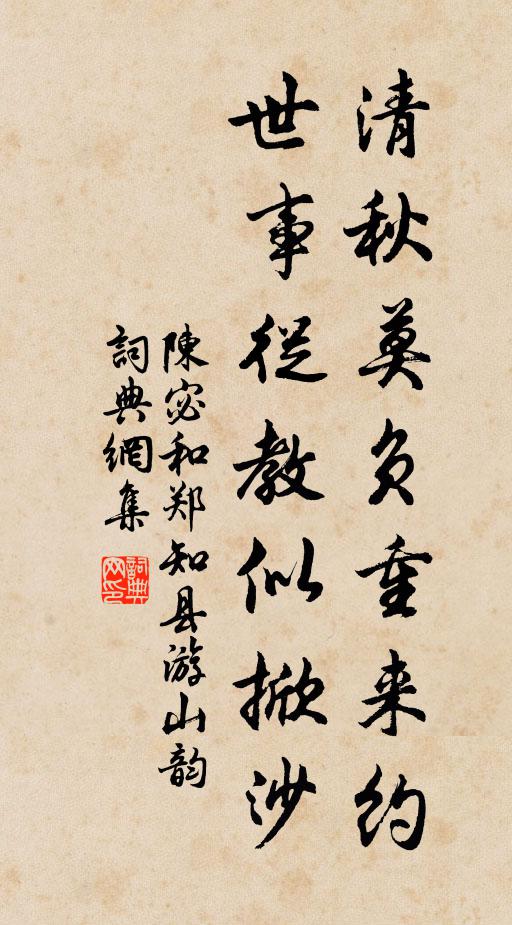 清秋莫负重来约
世事從教似掀沙
陳宓和郑知县游山韵
詞典網集
詞典网印